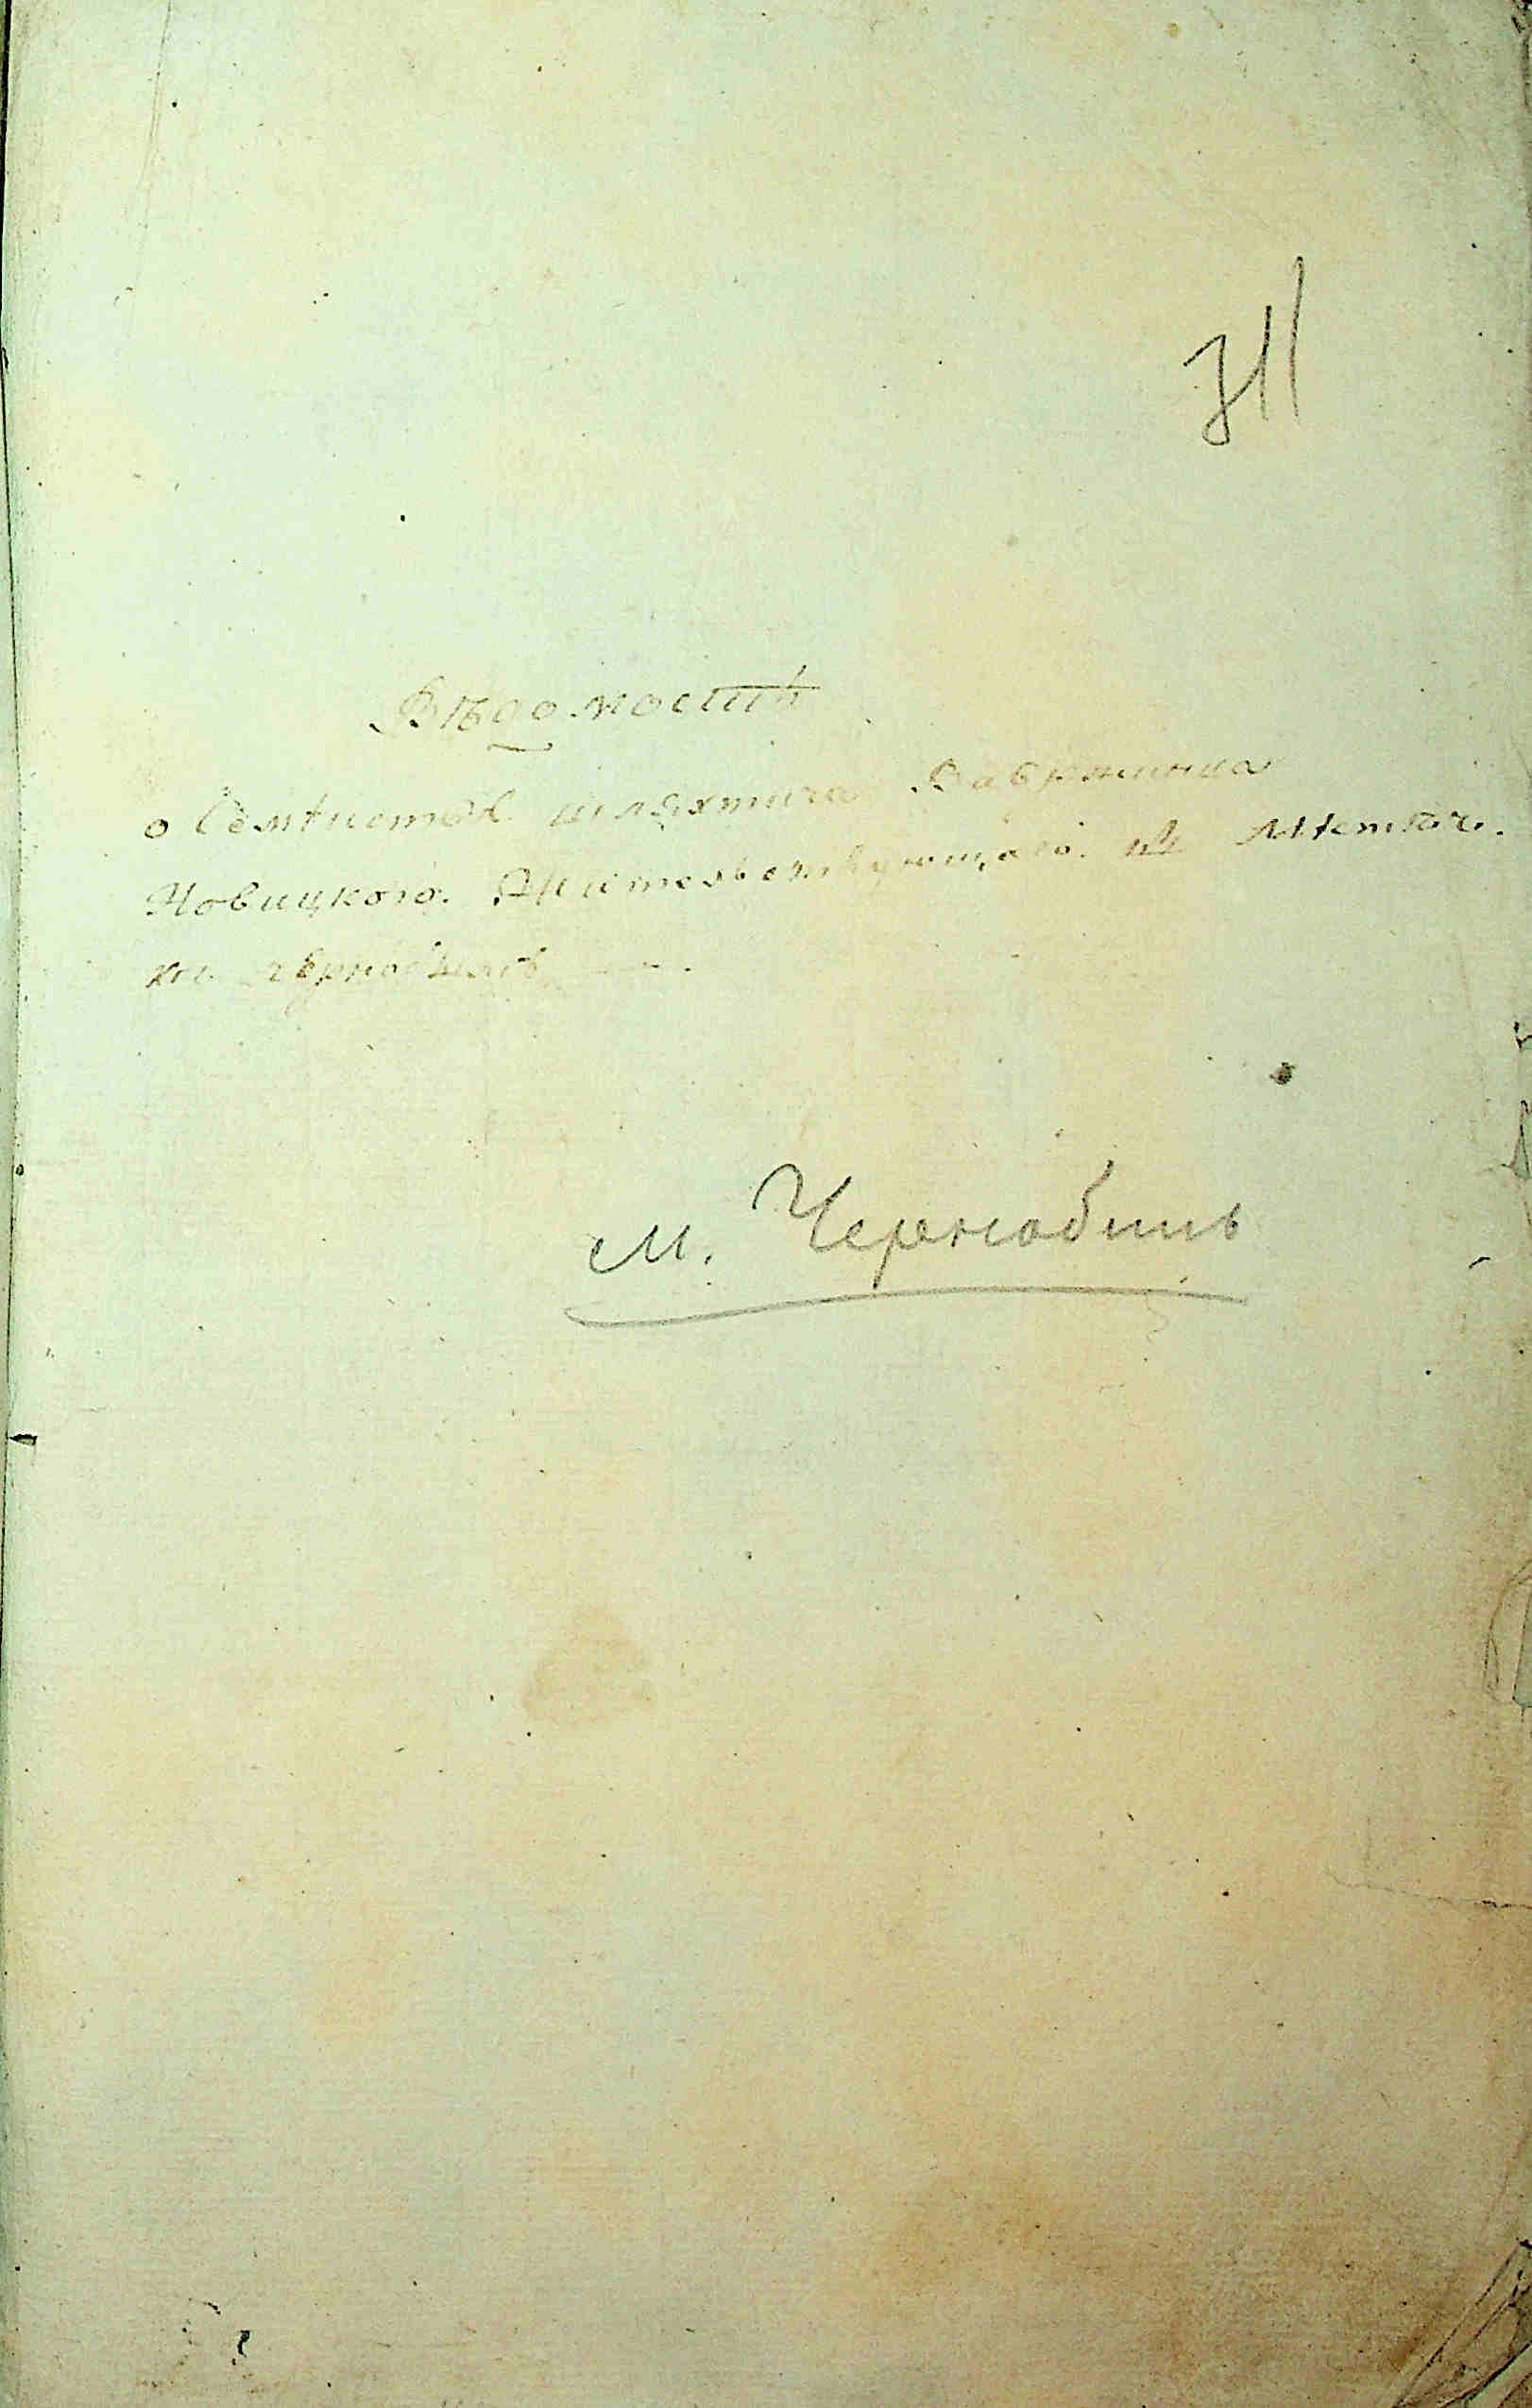 311
Вѣдомость
о Семействѣ шляхтича Вавржинца
Новицкого. Жительствующаго. въ Местеч.
ки Чернобылѣ —.
м. Чернобиль